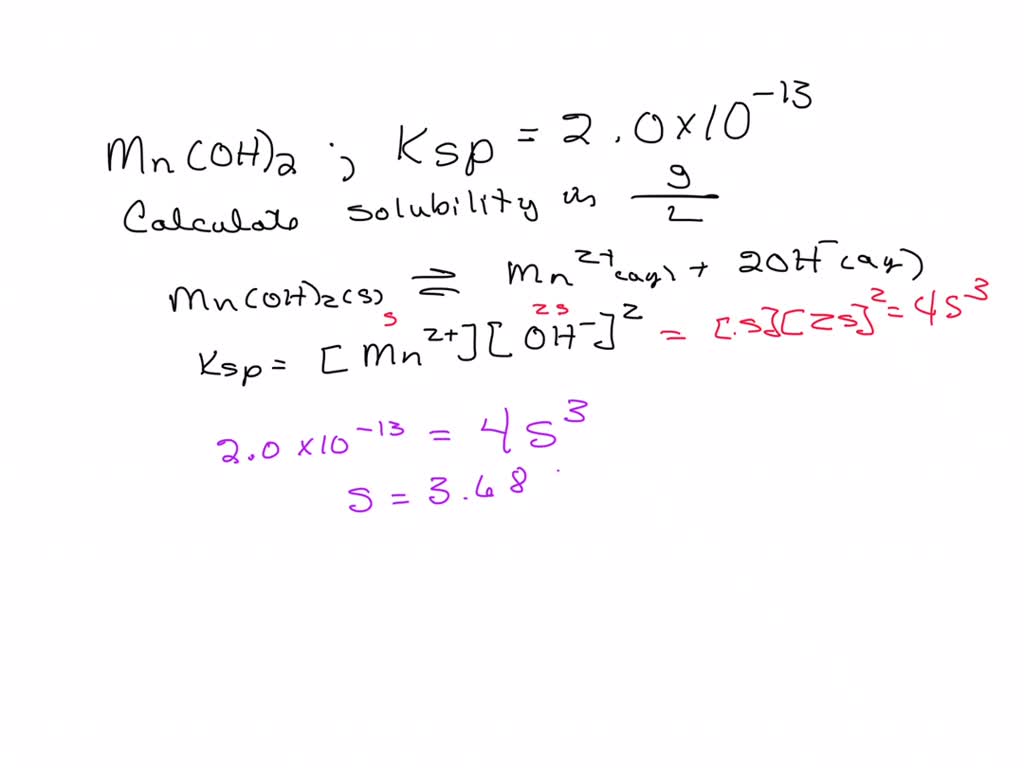 Mn(OH)2 ; Ksp = 2.0×10^-13
Calculate solubility in g/L
Mn(OH)2(s) ⇌ Mn^2+(aq) + 2OH^-(aq)
s 2s
Ksp = [Mn^2+][OH^-]^2 = [s][2s]^2 = 4s^3
2.0×10^-13 = 4s^3
s = 3.68